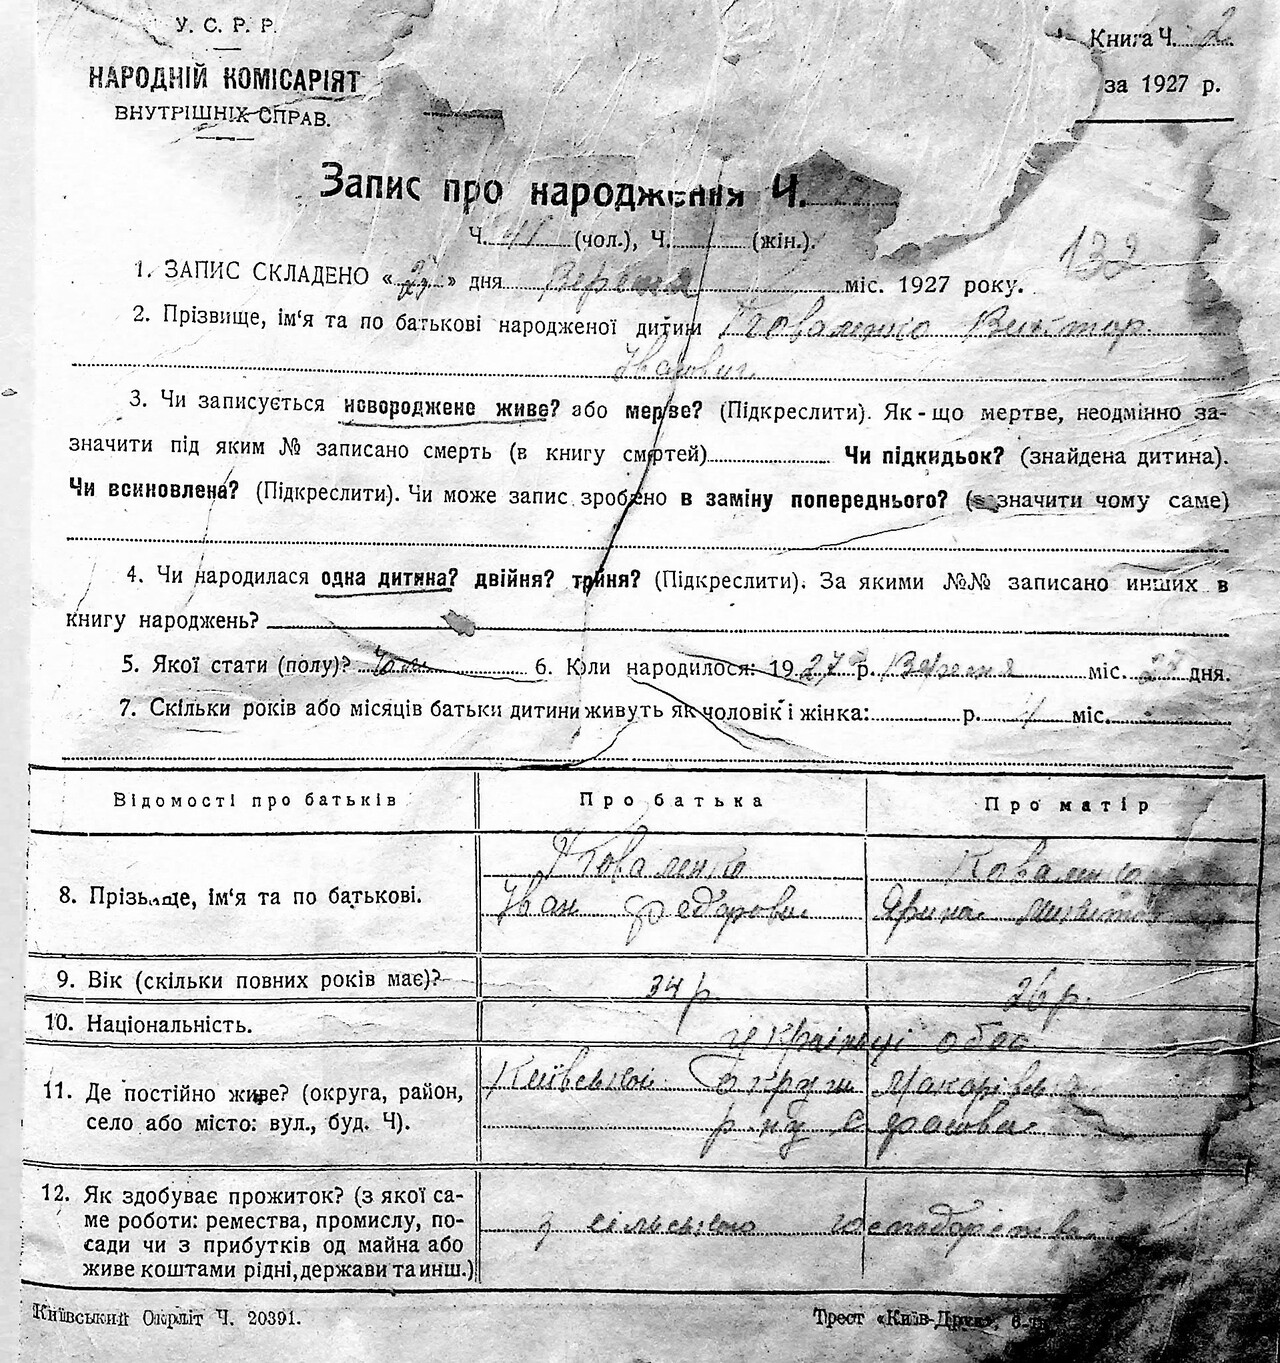 У. С. Р. Р.
НАРОДНІЙ КОМІСАРІЯТ
ВНУТРІШНІХ СПРАВ.
Книга Ч. 2
за 1927 р.
Запис про народження Ч.
Ч. 41 (чол.), Ч. (жін.).
132
1. ЗАПИС СКЛАДЕНО « » дня Вересня міс. 1927 року.
2. Прізвище, ім‘я та по батькові народженої дитини Коваленко Виктор
Іванович
3. Чи записується новороджене живе? або мертве? (Підкреслити). Як-що мертве, неодмінно за-
значити під яким № записано смерть (в книгу смертей) Чи підкидьок? (знайдена дитина).
Чи всиновлена? (Підкреслити). Чи може запис зроблено в заміну попереднього? (зазначити чому саме)
4. Чи народилася одна дитина? двійня? трійня? (Підкреслити). За якими №№ записано инших в
книгу народжень?
5. Якої стати (полу)? Чол 6. Коли народилося: 1927 р. Вересня міс. 27 дня.
7. Скільки років або місяців батьки дитини живуть як чоловік і жінка: р. міс.
Відомості про батьків Про батька Про матір
Коваленко Коваленко
8. Прізвище, ім‘я та по батькові. Іван Федорович Ярина
9. Вік (скільки повних років має)? 34 р. 26 р.
10. Національність. Українці обоє
11. Де постійно живе? (округа, район, Київської округи Макарівськ
село або місто: вул., буд. Ч). р-ну с
12. Як здобуває прожиток? (з якої са-
ме роботи: ремества, промислу, по- з сільського господарства
сади чи з прибутків од майна або
живе коштами рідні, держави та инш.)
Київський Окрліт Ч. 20391.
Трест «Київ-Друк»,